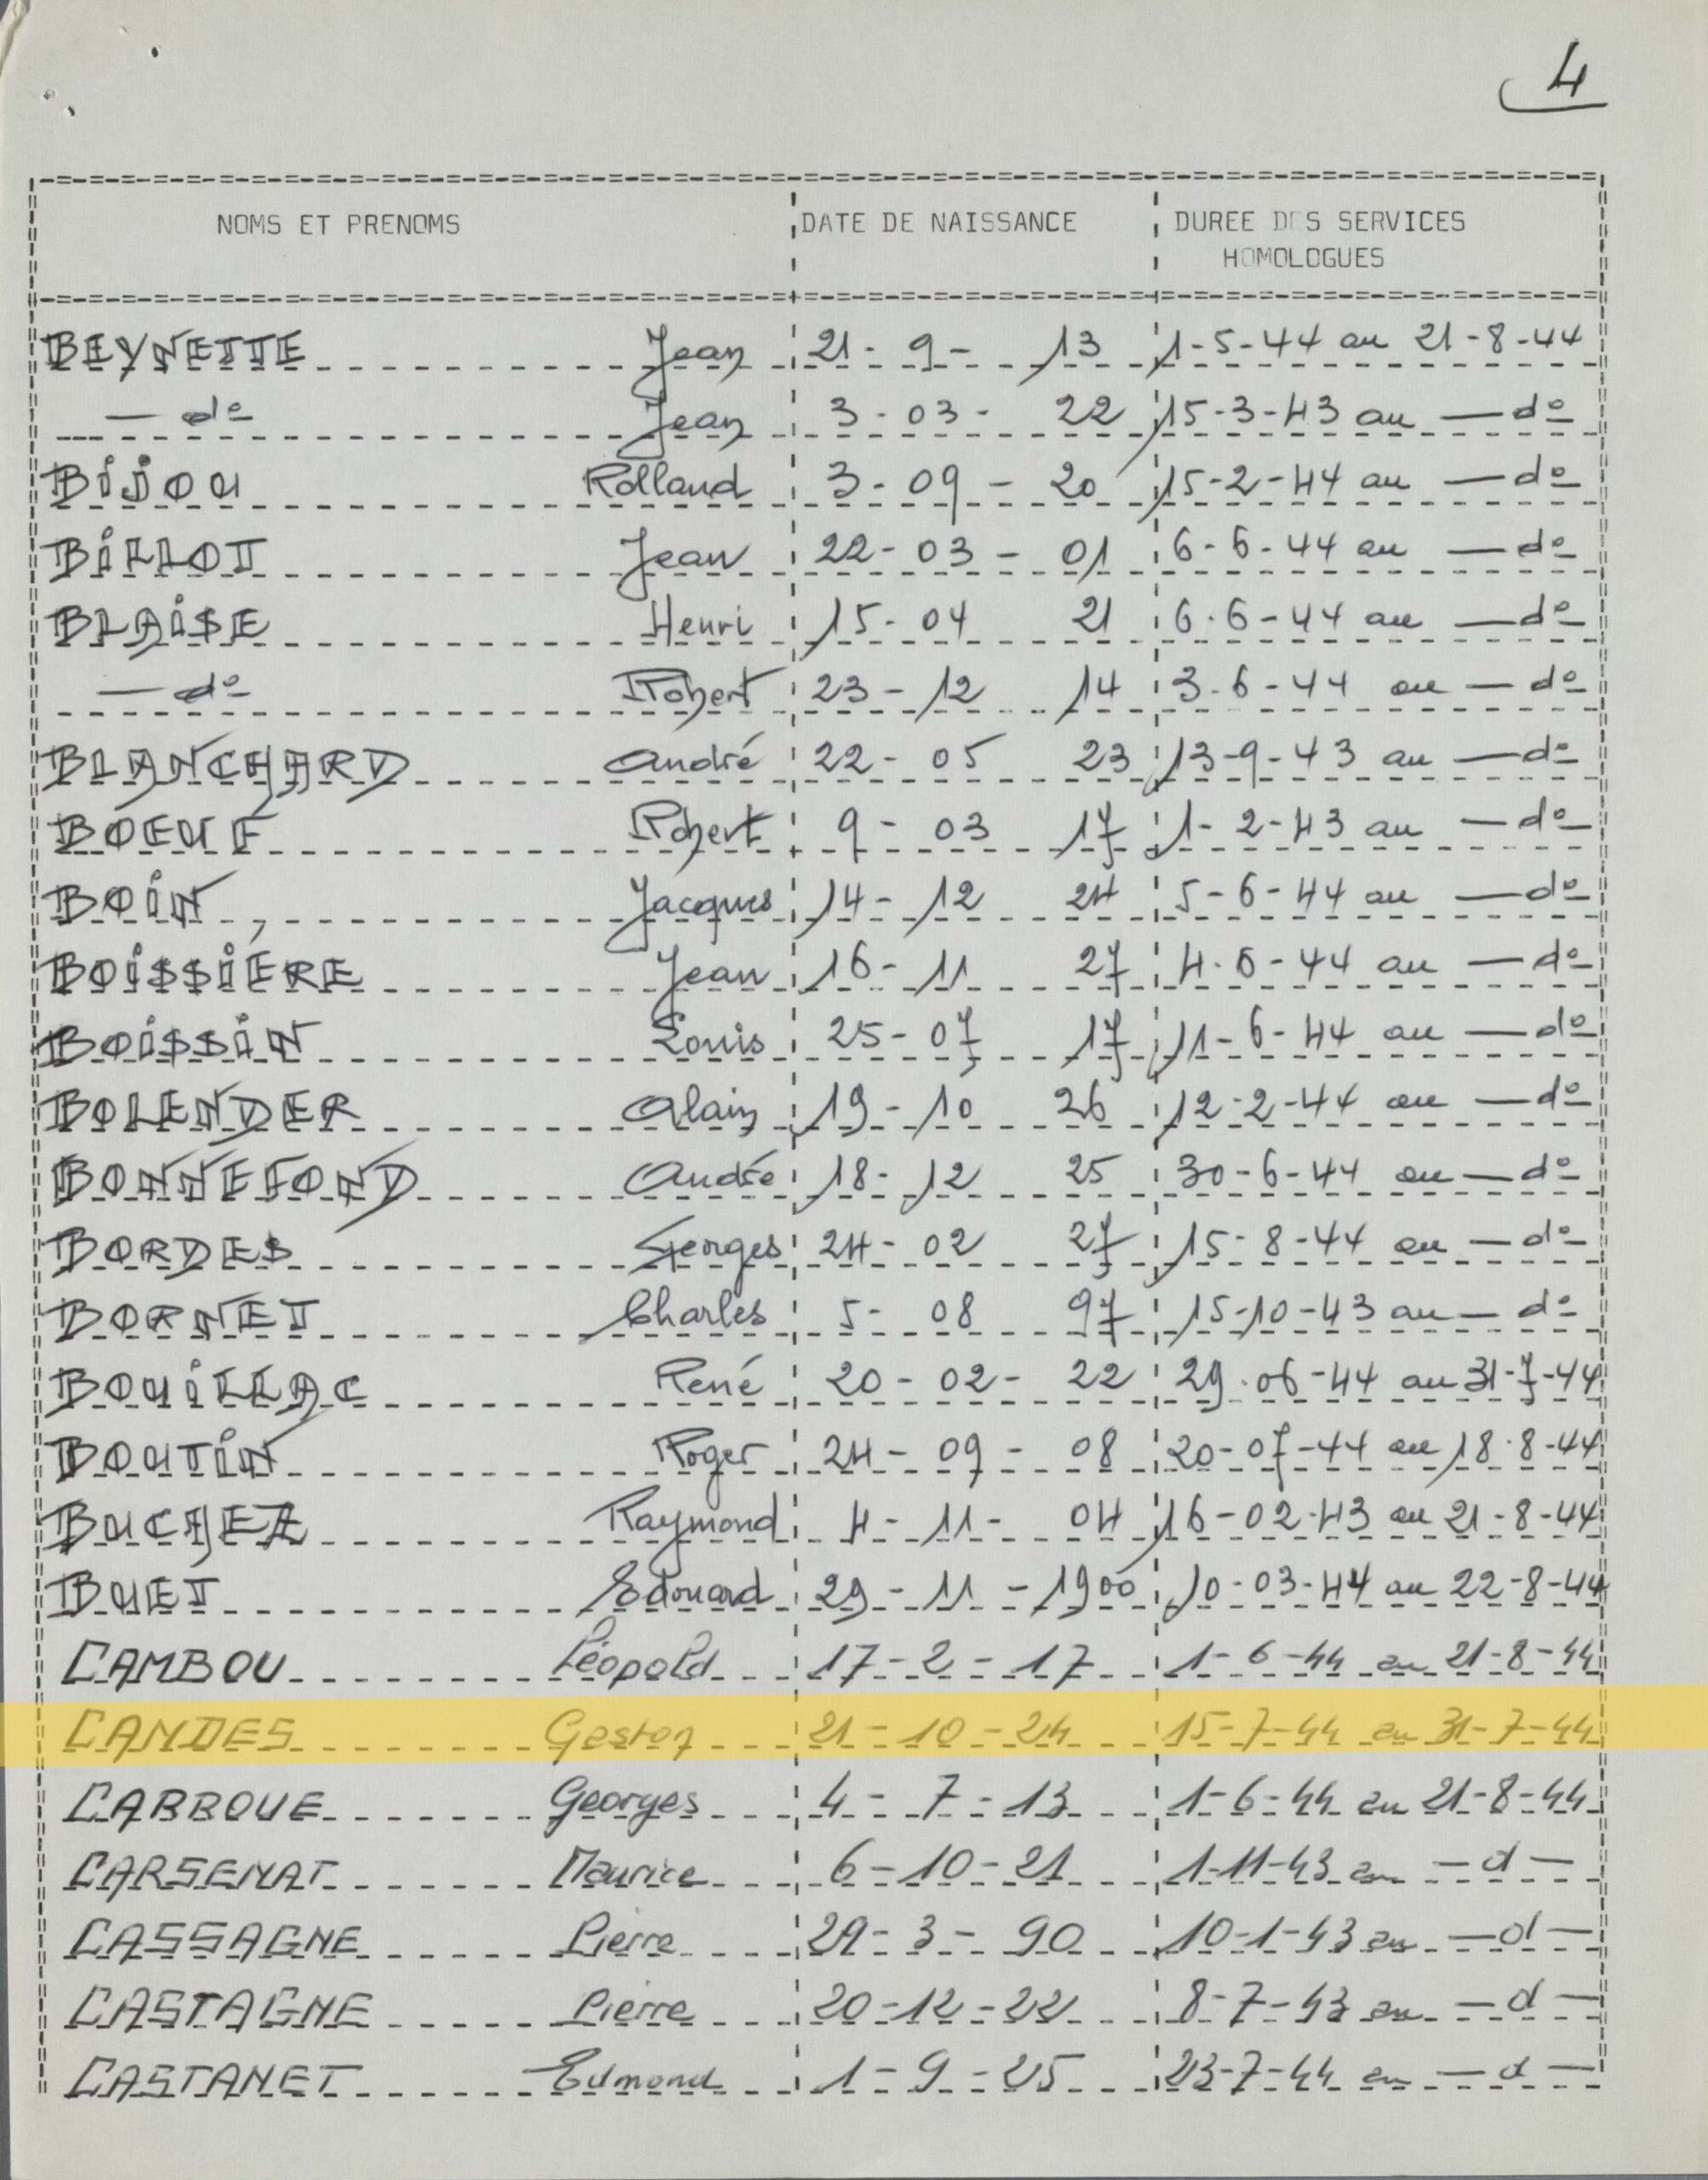 4
NOMS ET PRENOMS DATE DE NAISSANCE DUREE DES SERVICES
HOMOLOGUES
BEYNETTE Jean 21-9-13 1-5-44 au 21-8-44
— do Jean 3-03-22 15-3-43 au — do
BiJOU Rolland 3-09-20 15-2-44 au — do
BiLLOT Jean 22-03-01 6-6-44 au — do
BLAiSE Henri 15-04 21 6-6-44 au — do
— do Robert 23-12 14 3-6-44 au — do
BLANCHARD André 22-05 23 13-9-43 au — do
BOEUF Robert 9-03 17 1-2-43 au — do
BOiN Jacques 14-12 24 5-6-44 au — do
BOiSSiÈRE Jean 16-11 27 4-6-44 au — do
BOiSSiN Louis 25-07 17 11-6-44 au — do
BOLENDER Alain 19-10 26 12-2-44 au — do
BONNEFOND André 18-12 25 30-6-44 au — do
BORDES Georges 24-02 27 15-8-44 au — do
BORNET Charles 5-08 97 15-10-43 au — do
BOUiLLAC René 20-02-22 29-06-44 au 31-7-44
BOUTiN Roger 24-09-08 20-07-44 au 18-8-44
BUCHEZ Raymond 4-11-04 16-02-43 au 21-8-44
BUET Edouard 29-11-1900 10-03-44 au 22-8-44
CAMBOU Léopold 17-2-17 1-6-44 au 21-8-44
CANDES Gaston 21-10-24 15-7-44 au 31-7-44
CARBOUE Georges 4-7-13 1-6-44 au 21-8-44
CARSENAT Maurice 6-10-21 1-11-43 au — d —
CASSAGNE Pierre 29-3-90 10-1-43 au — d —
CASTAGNE Pierre 20-12-22 8-7-43 au — d —
CASTANET Edmond 1-9-25 23-7-44 au — d —